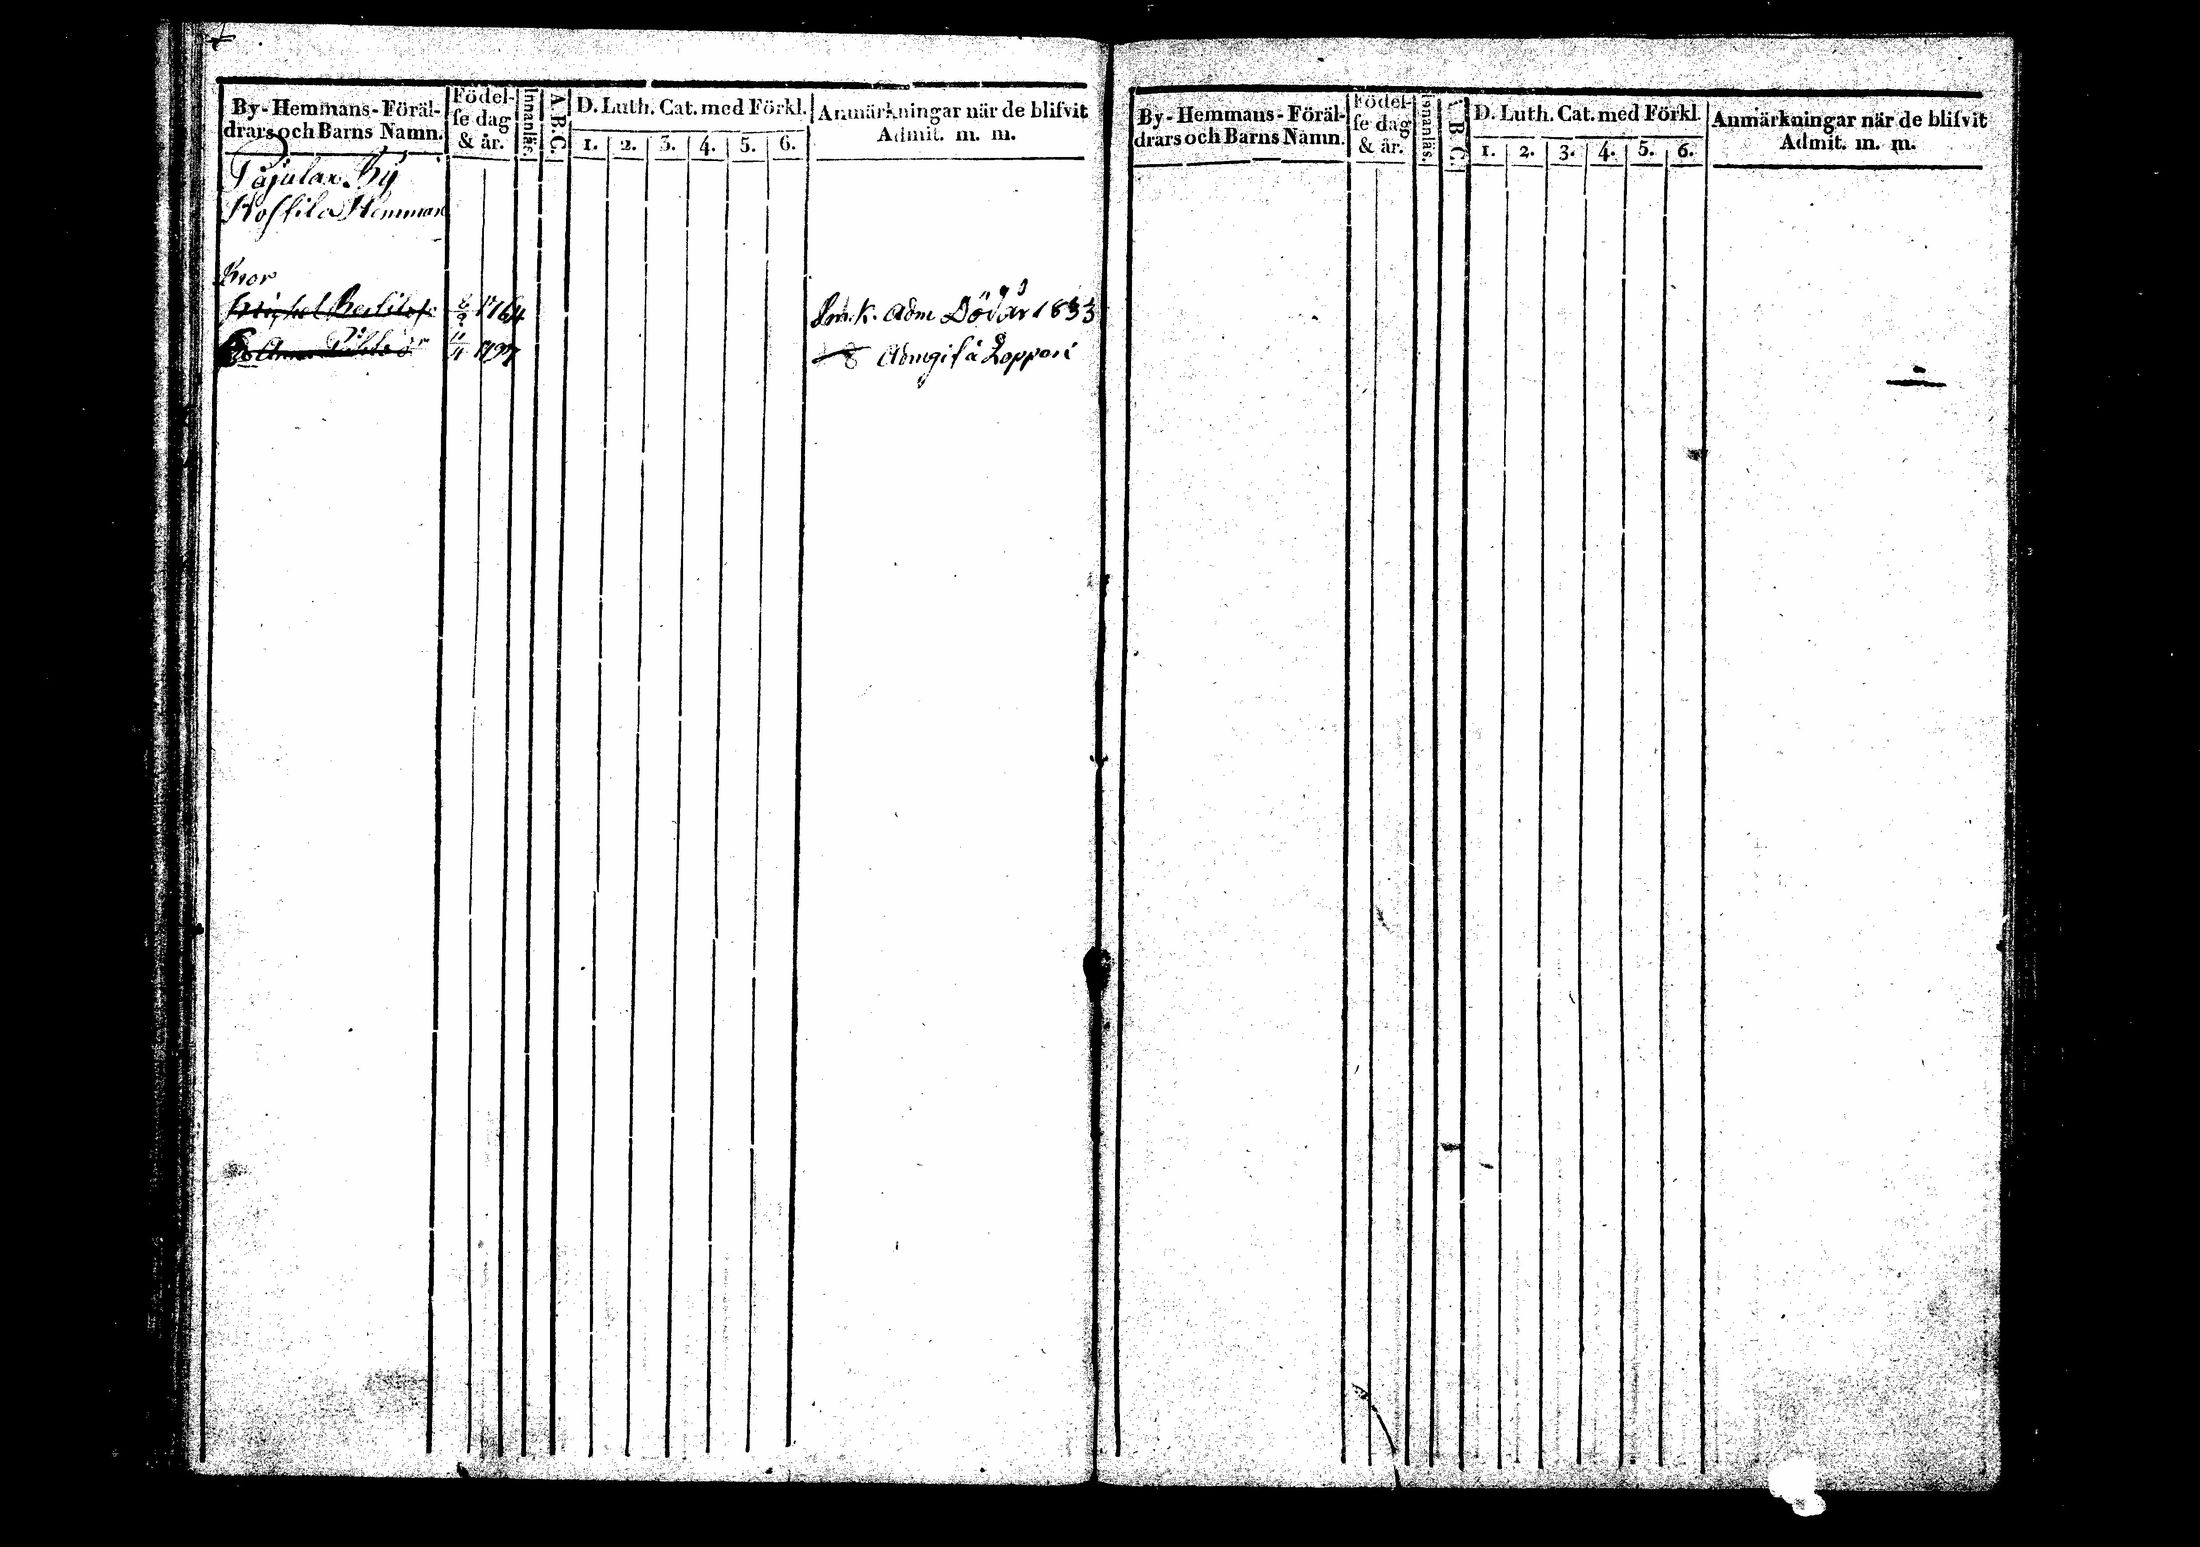 By-Hemmans-Föräl-
drars och Barns Namn.
Födel-
ſe dag
& år.
Innanläs.
A.B.C.
D. Luth. Cat. med Förkl.
1. 2. 3. 4. 5. 6.
Anmärkningar när de blifvit
Admit. m. m.
Pajulax By
Hemman
Michel 1764
Adm Död år 1833
Anna 1797
Admgift å Loppari
By-Hemmans-Föräl-
drars och Barns Namn.
Födel-
ſe dag
& år.
Innanläs.
A.B.C.
D. Luth. Cat. med Förkl.
1. 2. 3. 4. 5. 6.
Anmärkningar när de blifvit
Admit. m. m.